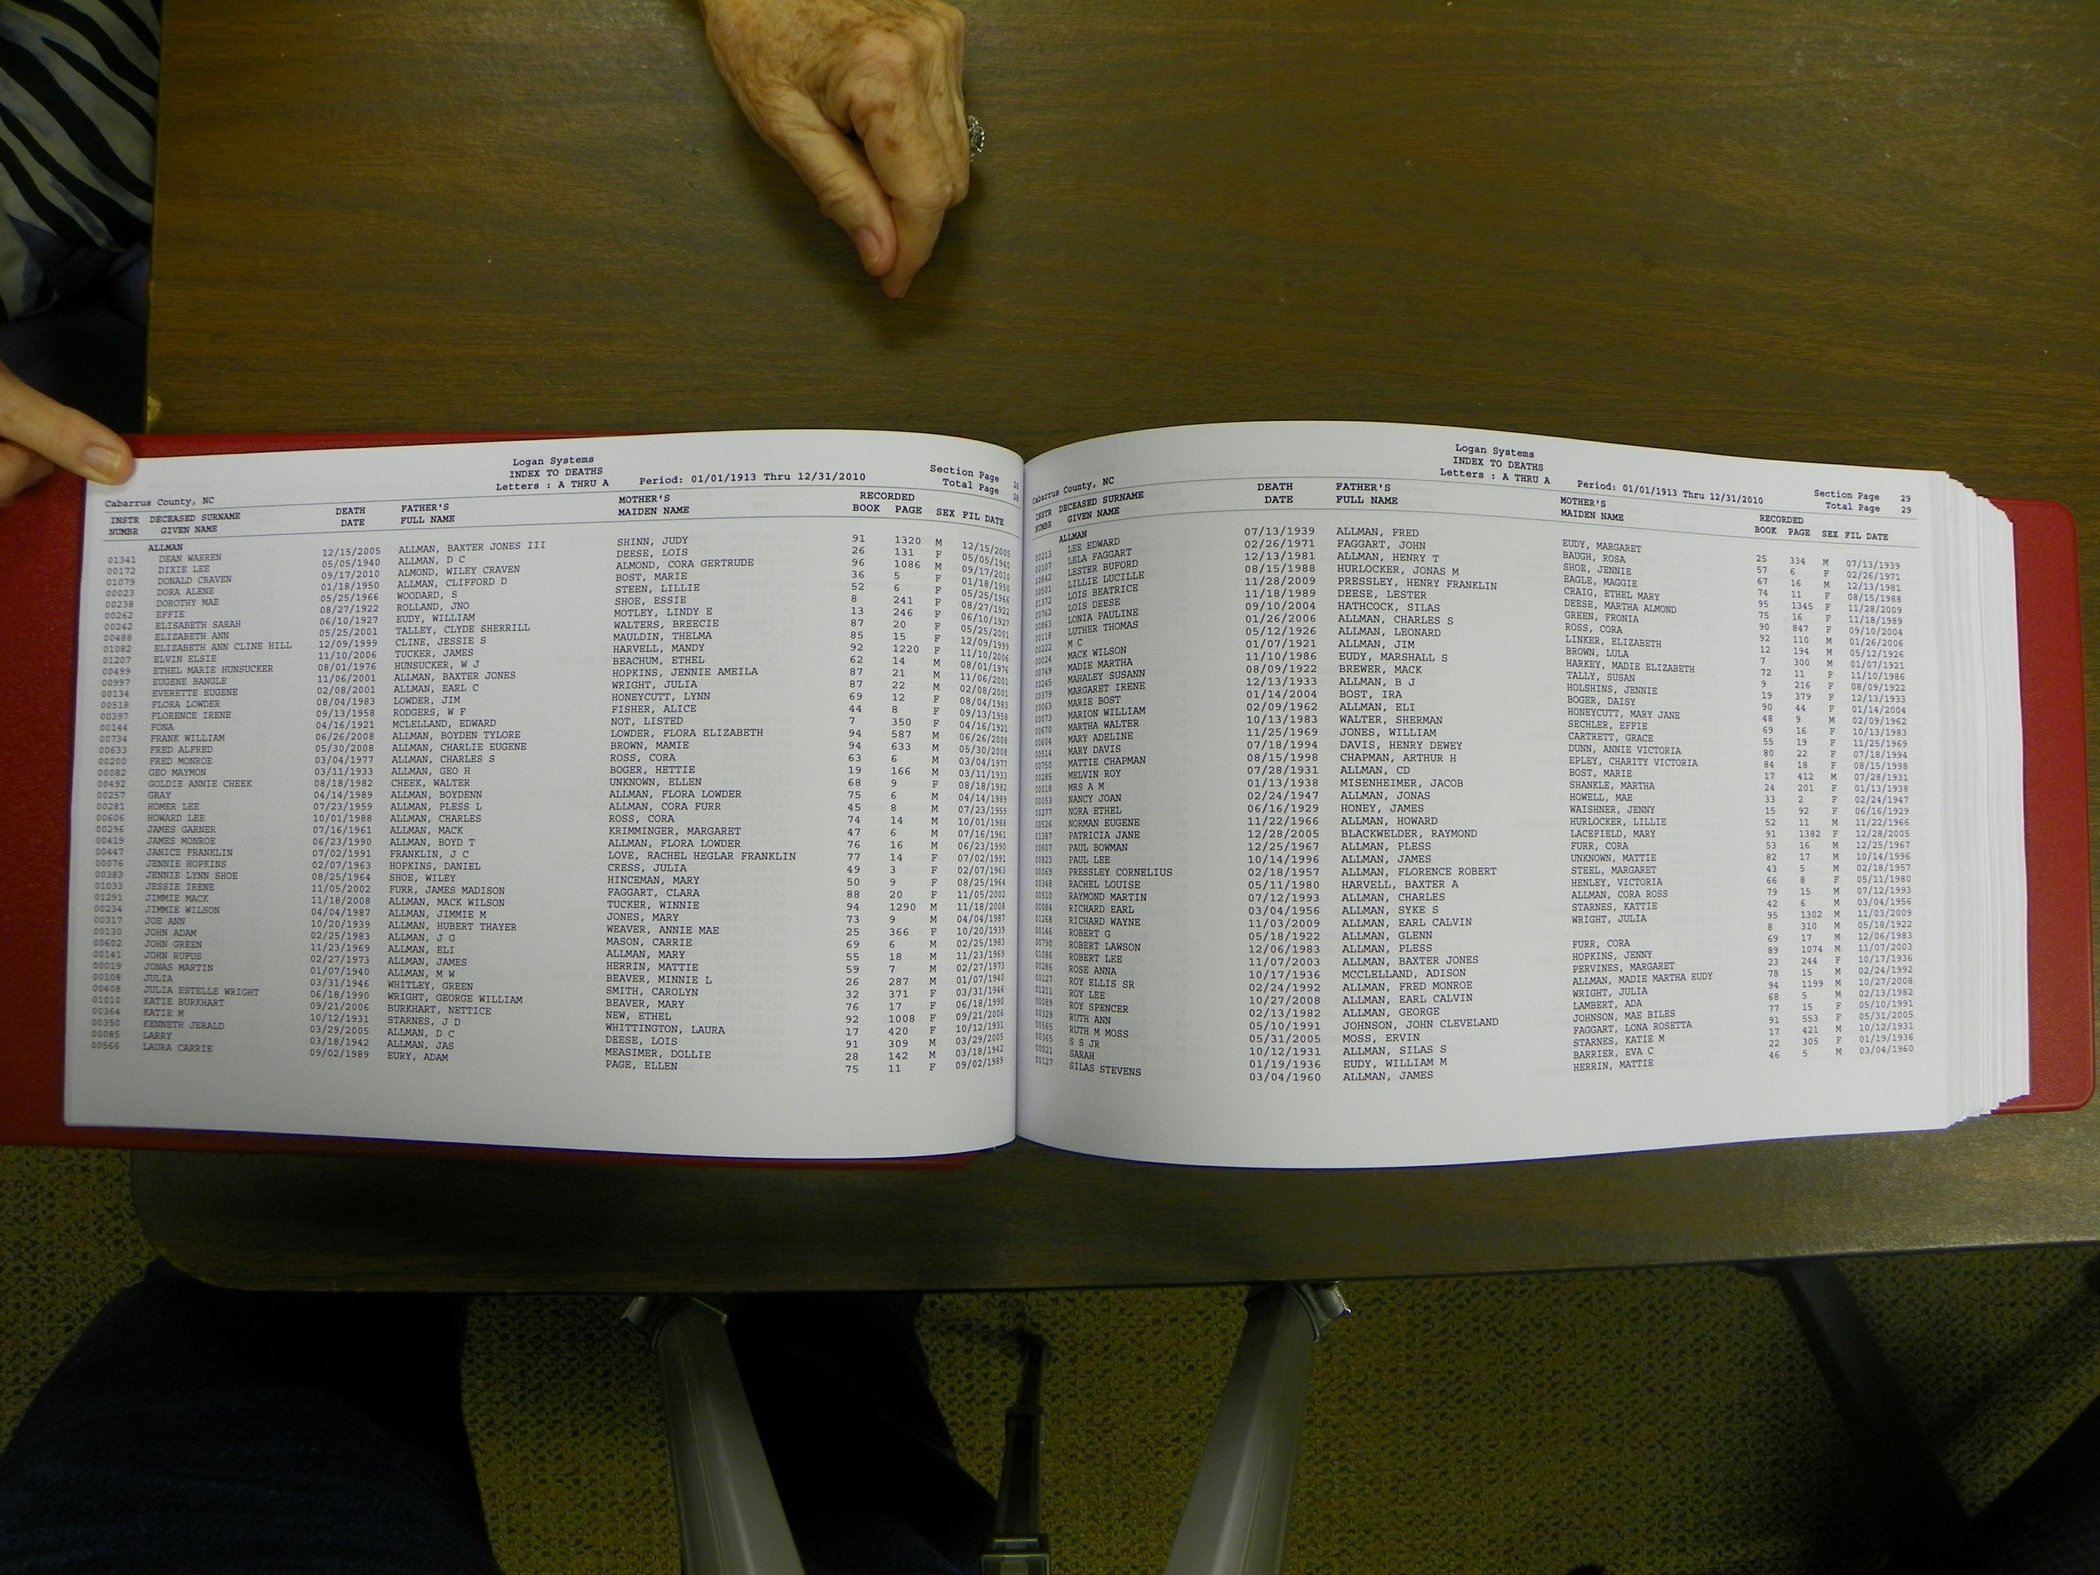 Logan Systems
INDEX TO DEATHS
Letters : A THRU A Period: 01/01/1913 Thru 12/31/2010
Section Page 28
Total Page 28
Cabarrus County, NC
INSTR DECEASED SURNAME DEATH FATHER'S MOTHER'S RECORDED
NUMBR GIVEN NAME DATE FULL NAME MAIDEN NAME BOOK PAGE SEX FIL DATE
ALLMAN
01341 DEAN WARREN 12/15/2005 ALLMAN, BAXTER JONES III SHINN, JUDY 91 1320 M 12/15/2005
00172 DIXIE LEE 05/05/1940 ALLMAN, D C DEESE, LOIS 26 131 F 05/05/1940
01079 DONALD CRAVEN 09/17/2010 ALMOND, WILEY CRAVEN ALMOND, CORA GERTRUDE 96 1086 M 09/17/2010
00023 DORA ALENE 01/18/1950 ALLMAN, CLIFFORD D BOST, MARIE 36 5 F 01/18/1950
00238 DOROTHY MAE 05/25/1966 WOODARD, S STEEN, LILLIE 52 6 F 05/25/1966
00262 EFFIE 08/27/1922 ROLLAND, JNO SHOE, ESSIE 8 241 F 08/27/1922
00242 ELISABETH SARAH 06/10/1927 EUDY, WILLIAM MOTLEY, LINDY E 13 246 F 06/10/1927
00488 ELIZABETH ANN 05/25/2001 TALLEY, CLYDE SHERRILL WALTERS, BREECIE 87 20 F 05/25/2001
01082 ELIZABETH ANN CLINE HILL 12/09/1999 CLINE, JESSIE S MAULDIN, THELMA 85 15 F 12/09/1999
01207 ELVIN ELSIE 11/10/2006 TUCKER, JAMES HARVELL, MANDY 92 1220 F 11/10/2006
00499 ETHEL MARIE HUNSUCKER 08/01/1976 HUNSUCKER, W J BEACHUM, ETHEL 62 14 M 08/01/1976
00997 EUGENE BANGLE 11/06/2001 ALLMAN, BAXTER JONES HOPKINS, JENNIE AMEILA 87 21 M 11/06/2001
00134 EVERETTE EUGENE 02/08/2001 ALLMAN, EARL C WRIGHT, JULIA 87 22 M 02/08/2001
00518 FLORA LOWDER 08/04/1983 LOWDER, JIM HONEYCUTT, LYNN 69 12 F 08/04/1983
00397 FLORENCE IRENE 09/13/1958 RODGERS, W F FISHER, ALICE 44 8 F 09/13/1958
00144 FONA 04/16/1921 MCLELLAND, EDWARD NOT, LISTED 7 350 F 04/16/1921
00734 FRANK WILLIAM 06/26/2008 ALLMAN, BOYDEN TYLORE LOWDER, FLORA ELIZABETH 94 587 M 06/26/2008
00633 FRED ALFRED 05/30/2008 ALLMAN, CHARLIE EUGENE BROWN, MAMIE 94 633 M 05/30/2008
00200 FRED MONROE 03/04/1977 ALLMAN, CHARLES S ROSS, CORA 63 6 M 03/04/1977
00082 GEO MAYMON 03/11/1933 ALLMAN, GEO H BOGER, HETTIE 19 166 M 03/11/1933
00492 GOLDIE ANNIE CHEEK 08/18/1982 CHEEK, WALTER UNKNOWN, ELLEN 68 9 F 08/18/1982
00257 GRAY 04/14/1989 ALLMAN, BOYDENN ALLMAN, FLORA LOWDER 75 6 M 04/14/1989
00281 HOMER LEE 07/23/1959 ALLMAN, PLESS L ALLMAN, CORA FURR 45 8 M 07/23/1959
00606 HOWARD LEE 10/01/1988 ALLMAN, CHARLES ROSS, CORA 74 14 M 10/01/1988
00296 JAMES GARNER 07/16/1961 ALLMAN, MACK KRIMMINGER, MARGARET 47 6 M 07/16/1961
00419 JAMES MONROE 06/23/1990 ALLMAN, BOYD T ALLMAN, FLORA LOWDER 76 16 M 06/23/1990
00447 JANICE FRANKLIN 07/02/1991 FRANKLIN, J C LOVE, RACHEL HEGLAR FRANKLIN 77 14 F 07/02/1991
00076 JENNIE HOPKINS 02/07/1963 HOPKINS, DANIEL CRESS, JULIA 49 3 F 02/07/1963
00383 JENNIE LYNN SHOE 08/25/1964 SHOE, WILEY HINCEMAN, MARY 50 9 F 08/25/1964
01033 JESSIE IRENE 11/05/2002 FURR, JAMES MADISON FAGGART, CLARA 88 20 F 11/05/2002
01291 JIMMIE MACK 11/18/2008 ALLMAN, MACK WILSON TUCKER, WINNIE 94 1290 M 11/18/2008
00234 JIMMIE WILSON 04/04/1987 ALLMAN, JIMMIE M JONES, MARY 73 9 M 04/04/1987
00317 JOE ANN 10/20/1939 ALLMAN, HUBERT THAYER WEAVER, ANNIE MAE 25 366 F 10/20/1939
00130 JOHN ADAM 02/25/1983 ALLMAN, J G MASON, CARRIE 69 6 M 02/25/1983
00602 JOHN GREEN 11/23/1969 ALLMAN, ELI ALLMAN, MARY 55 18 M 11/23/1969
00141 JOHN RUFUS 02/27/1973 ALLMAN, JAMES HERRIN, MATTIE 59 7 M 02/27/1973
00019 JONAS MARTIN 01/07/1940 ALLMAN, M W BEAVER, MINNIE L 26 287 M 01/07/1940
00108 JULIA 03/31/1946 WHITLEY, GREEN SMITH, CAROLYN 32 371 F 03/31/1946
00408 JULIA ESTELLE WRIGHT 06/18/1990 WRIGHT, GEORGE WILLIAM BEAVER, MARY 76 17 F 06/18/1990
01010 KATIE BURKHART 09/21/2006 BURKHART, NETTICE NEW, ETHEL 92 1008 F 09/21/2006
00364 KATIE M 10/12/1931 STARNES, J D WHITTINGTON, LAURA 17 420 F 10/12/1931
00350 KENNETH JERALD 03/29/2005 ALLMAN, D C DEESE, LOIS 91 309 M 03/29/2005
00085 LARRY 03/18/1942 ALLMAN, JAS MEASIMER, DOLLIE 28 142 M 03/18/1942
00566 LAURA CARRIE 09/02/1989 EURY, ADAM PAGE, ELLEN 75 11 F 09/02/1989
Logan Systems
INDEX TO DEATHS
Letters : A THRU A Period: 01/01/1913 Thru 12/31/2010
Section Page 29
Total Page 29
Cabarrus County, NC
INSTR DECEASED SURNAME DEATH FATHER'S MOTHER'S RECORDED
NUMBR GIVEN NAME DATE FULL NAME MAIDEN NAME BOOK PAGE SEX FIL DATE
ALLMAN
00213 LEE EDWARD 07/13/1939 ALLMAN, FRED EUDY, MARGARET 25 334 M 07/13/1939
00107 LELA FAGGART 02/26/1971 FAGGART, JOHN BAUGH, ROSA 57 6 F 02/26/1971
00842 LESTER BUFORD 12/13/1981 ALLMAN, HENRY T SHOE, JENNIE 67 16 M 12/13/1981
00501 LILLIE LUCILLE 08/15/1988 HURLOCKER, JONAS M EAGLE, MAGGIE 74 11 F 08/15/1988
01372 LOIS BEATRICE 11/28/2009 PRESSLEY, HENRY FRANKLIN CRAIG, ETHEL MARY 95 1345 F 11/28/2009
00762 LOIS DEESE 11/18/1989 DEESE, LESTER DEESE, MARTHA ALMOND 75 16 F 11/18/1989
00863 LONIA PAULINE 09/10/2004 HATHCOCK, SILAS GREEN, FRONIA 90 847 F 09/10/2004
00118 LUTHER THOMAS 01/26/2006 ALLMAN, CHARLES S ROSS, CORA 92 110 M 01/26/2006
00222 M C 05/12/1926 ALLMAN, LEONARD LINKER, ELIZABETH 12 194 M 05/12/1926
00024 MACK WILSON 01/07/1921 ALLMAN, JIM BROWN, LULA 7 300 M 01/07/1921
00749 MADIE MARTHA 11/10/1986 EUDY, MARSHALL S HARKEY, MADIE ELIZABETH 72 11 F 11/10/1986
00245 MAHALEY SUSANN 08/09/1922 BREWER, MACK TALLY, SUSAN 9 216 F 08/09/1922
00379 MARGARET IRENE 12/13/1933 ALLMAN, B J HOLSHINS, JENNIE 19 379 F 12/13/1933
00063 MARIE BOST 01/14/2004 BOST, IRA BOGER, DAISY 90 44 F 01/14/2004
00073 MARION WILLIAM 02/09/1962 ALLMAN, ELI HONEYCUTT, MARY JANE 48 9 M 02/09/1962
00670 MARTHA WALTER 10/13/1983 WALTER, SHERMAN SECHLER, EFFIE 69 16 F 10/13/1983
00604 MARY ADELINE 11/25/1969 JONES, WILLIAM CARTRETT, GRACE 55 19 F 11/25/1969
00514 MARY DAVIS 07/18/1994 DAVIS, HENRY DEWEY DUNN, ANNIE VICTORIA 80 22 F 07/18/1994
00750 MATTIE CHAPMAN 08/15/1998 CHAPMAN, ARTHUR H EPLEY, CHARITY VICTORIA 84 18 F 08/15/1998
00285 MELVIN ROY 07/28/1931 ALLMAN, CD BOST, MARIE 17 412 M 07/28/1931
00018 MRS A M 01/13/1938 MISENHEIMER, JACOB SHANKLE, MARTHA 24 201 F 01/13/1938
00053 NANCY JOAN 02/24/1947 ALLMAN, JONAS HOWELL, MAE 33 2 F 02/24/1947
00277 NORA ETHEL 06/16/1929 HONEY, JAMES WAISHNER, JENNY 15 92 F 06/16/1929
00526 NORMAN EUGENE 11/22/1966 ALLMAN, HOWARD HURLOCKER, LILLIE 52 11 M 11/22/1966
01387 PATRICIA JANE 12/28/2005 BLACKWELDER, RAYMOND LACEFIELD, MARY 91 1382 F 12/28/2005
00607 PAUL BOWMAN 12/25/1967 ALLMAN, PLESS FURR, CORA 53 16 M 12/25/1967
00823 PAUL LEE 10/14/1996 ALLMAN, JAMES UNKNOWN, MATTIE 82 17 M 10/14/1996
00069 PRESSLEY CORNELIUS 02/18/1957 ALLMAN, FLORENCE ROBERT STEEL, MARGARET 43 5 M 02/18/1957
00348 RACHEL LOUISE 05/11/1980 HARVELL, BAXTER A HENLEY, VICTORIA 66 8 F 05/11/1980
00510 RAYMOND MARTIN 07/12/1993 ALLMAN, CHARLES ALLMAN, CORA ROSS 79 15 M 07/12/1993
00084 RICHARD EARL 03/04/1956 ALLMAN, SYKE S STARNES, KATTIE 42 6 M 03/04/1956
01268 RICHARD WAYNE 11/03/2009 ALLMAN, EARL CALVIN WRIGHT, JULIA 95 1302 M 11/03/2009
00146 ROBERT G 05/18/1922 ALLMAN, GLENN 8 310 M 05/18/1922
00790 ROBERT LAWSON 12/06/1983 ALLMAN, PLESS FURR, CORA 69 17 M 12/06/1983
01086 ROBERT LEE 11/07/2003 ALLMAN, BAXTER JONES HOPKINS, JENNY 89 1074 M 11/07/2003
00286 ROSE ANNA 10/17/1936 MCCLELLAND, ADISON PERVINES, MARGARET 23 244 F 10/17/1936
00127 ROY ELLIS SR 02/24/1992 ALLMAN, FRED MONROE ALLMAN, MADIE MARTHA EUDY 78 15 M 02/24/1992
01211 ROY LEE 10/27/2008 ALLMAN, EARL CALVIN WRIGHT, JULIA 94 1199 M 10/27/2008
00089 ROY SPENCER 02/13/1982 ALLMAN, GEORGE LAMBERT, ADA 68 5 M 02/13/1982
00329 RUTH ANN 05/10/1991 JOHNSON, JOHN CLEVELAND JOHNSON, MAE BILES 77 15 F 05/10/1991
00565 RUTH M MOSS 05/31/2005 MOSS, ERVIN FAGGART, LONA ROSETTA 91 553 F 05/31/2005
00365 S S JR 10/12/1931 ALLMAN, SILAS S STARNES, KATIE M 17 421 M 10/12/1931
00021 SARAH 01/19/1936 EUDY, WILLIAM M BARRIER, EVA C 22 305 F 01/19/1936
00127 SILAS STEVENS 03/04/1960 ALLMAN, JAMES HERRIN, MATTIE 46 5 M 03/04/1960